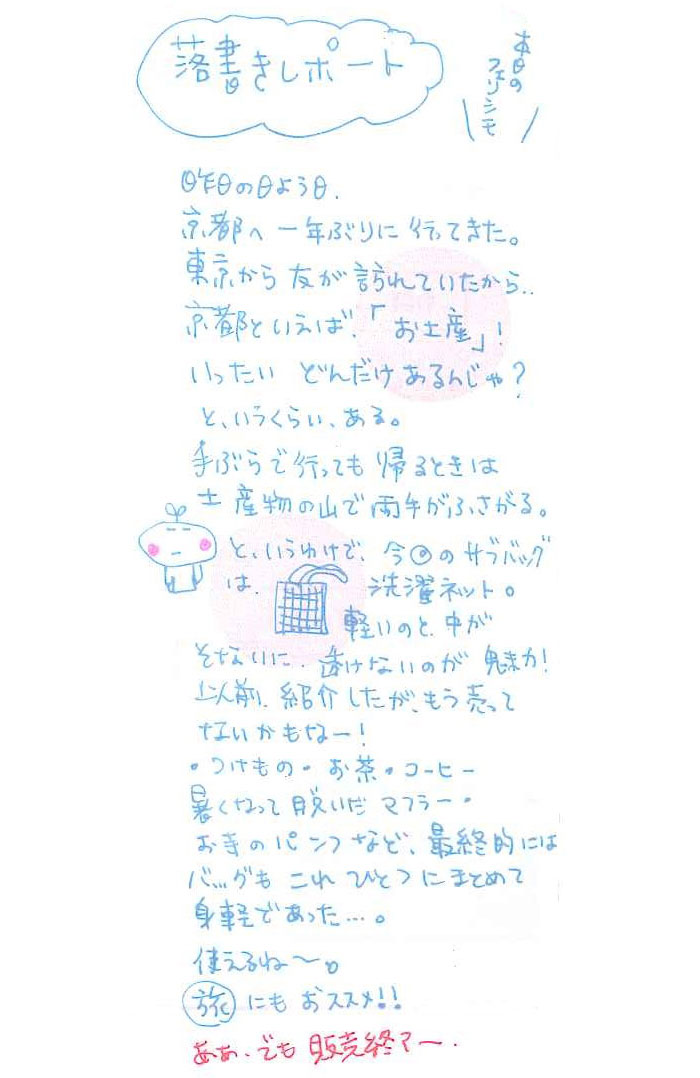 落書きレポート
本日の
フェリシモ
昨日の日よう日.
京都へ一年ぶりに行ってきた。
東京から友が訪れていたから..
京都といえば、「お土産」!
いったい どんだけあるんじゃ?
と、いうくらい、ある。
手ぶらで行っても帰るときは
土産物の山で両手がふさがる。
と、いうわけで、今回のサブバッグ
は、 洗濯ネット。
軽いのと、中が
そないに、透けないのが魅力!
以前、紹介したが、もう売って
ないかもなー!
・つけもの・お茶・コーヒー
暑くなって脱いだマフラー・
お寺のパンフなど、最終的には
バッグもこれひとつにまとめて
身軽であった…。
使えるね〜。
旅にもおススメ!!
ああ、でも販売終了ー.